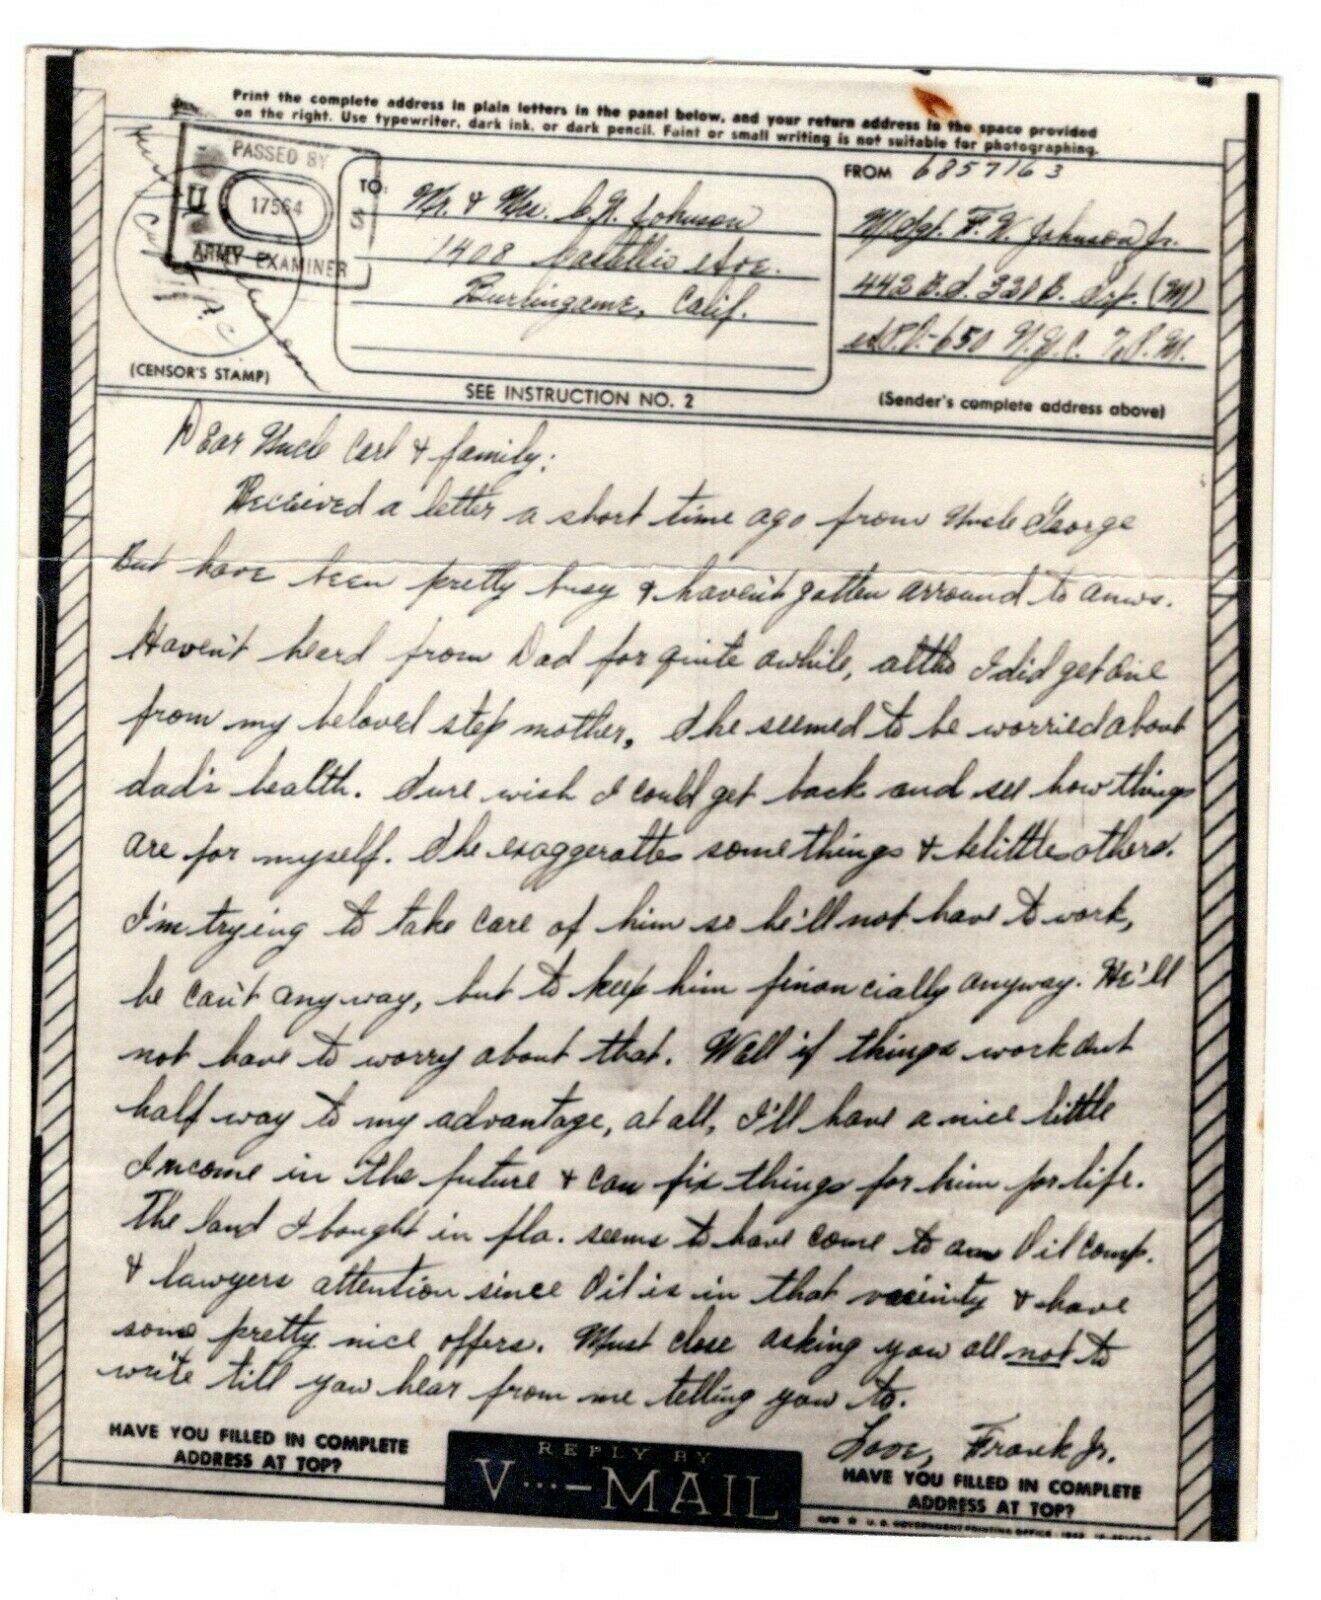 Print the complete address in plain letters in the panel below, and your return address in the space provided
on the right. Use typewriter, dark ink, or dark pencil. Faint or small writing is not suitable for photographing.
PASSED BY
U
17564
ARMY EXAMINER
(CENSOR'S STAMP)
TO:
Mr. & Mrs. C. N. Johnson
1408 Ave.
Burlingame, Calif.
SEE INSTRUCTION NO. 2
FROM 6857163
M/Sgt. F. W. Johnson Jr.
442 B. S. 320 B. Grp. (M)
A.P.O.-650 N.Y.C. % P.M.
(Sender's complete address above)
Dear Uncle Carl & family;
Received a letter a short time ago from Uncle George
But have been pretty busy & haven't gotten arround to answ.
Haven't heard from Dad for quite awhile, altho I did get one
from my beloved step mother, She seemed to be worried about
dad's health. Sure wish I could get back and see how things
are for myself. She exaggerattes some things & belittles others.
I'm trying to take care of him so he'll not have to work,
he can't anyway, but to keep him financially anyway. He'll
not have to worry about that. Well if things work out
half way to my advantage, at all, I'll have a nice little
Income in the future & can fix things for him for life.
The land I bought in fla. seems to have come to an Oil comp.
& lawyers attention since Oil is in that vicinity & have
some pretty nice offers. Must close asking you all not to
write till you hear from me telling you to.
Love, Frank Jr.
HAVE YOU FILLED IN COMPLETE
ADDRESS AT TOP?
REPLY BY
V...—MAIL
HAVE YOU FILLED IN COMPLETE
ADDRESS AT TOP?
GPO U. S. GOVERNMENT PRINTING OFFICE